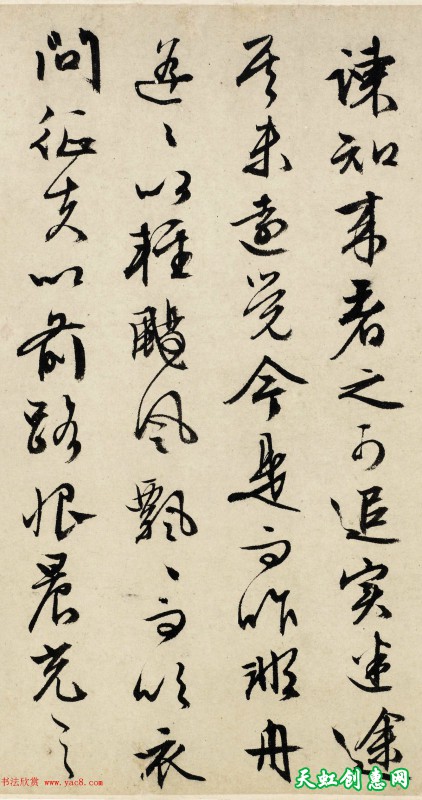 諫知来者之可追实迷途
其未遠覺今是而昨非舟
遥々以輕颺風飄々而吹衣
問征夫以前路恨晨光之
书法欣赏 www.yac8.com
天虹创惠网